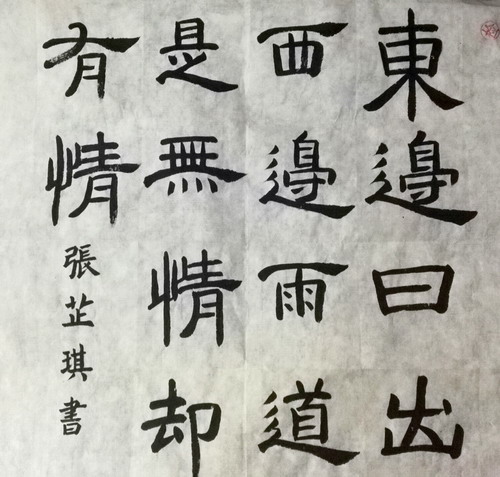 東邉日出
西邉雨道
是無情却
有情
張芷琪書